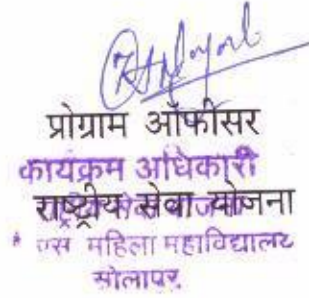 प्रोग्राम ऑफीसर
कार्यक्रम अधिकारी
राष्ट्रीय सेवा योजना
एस महिला महाविद्यालय
सोलापूर